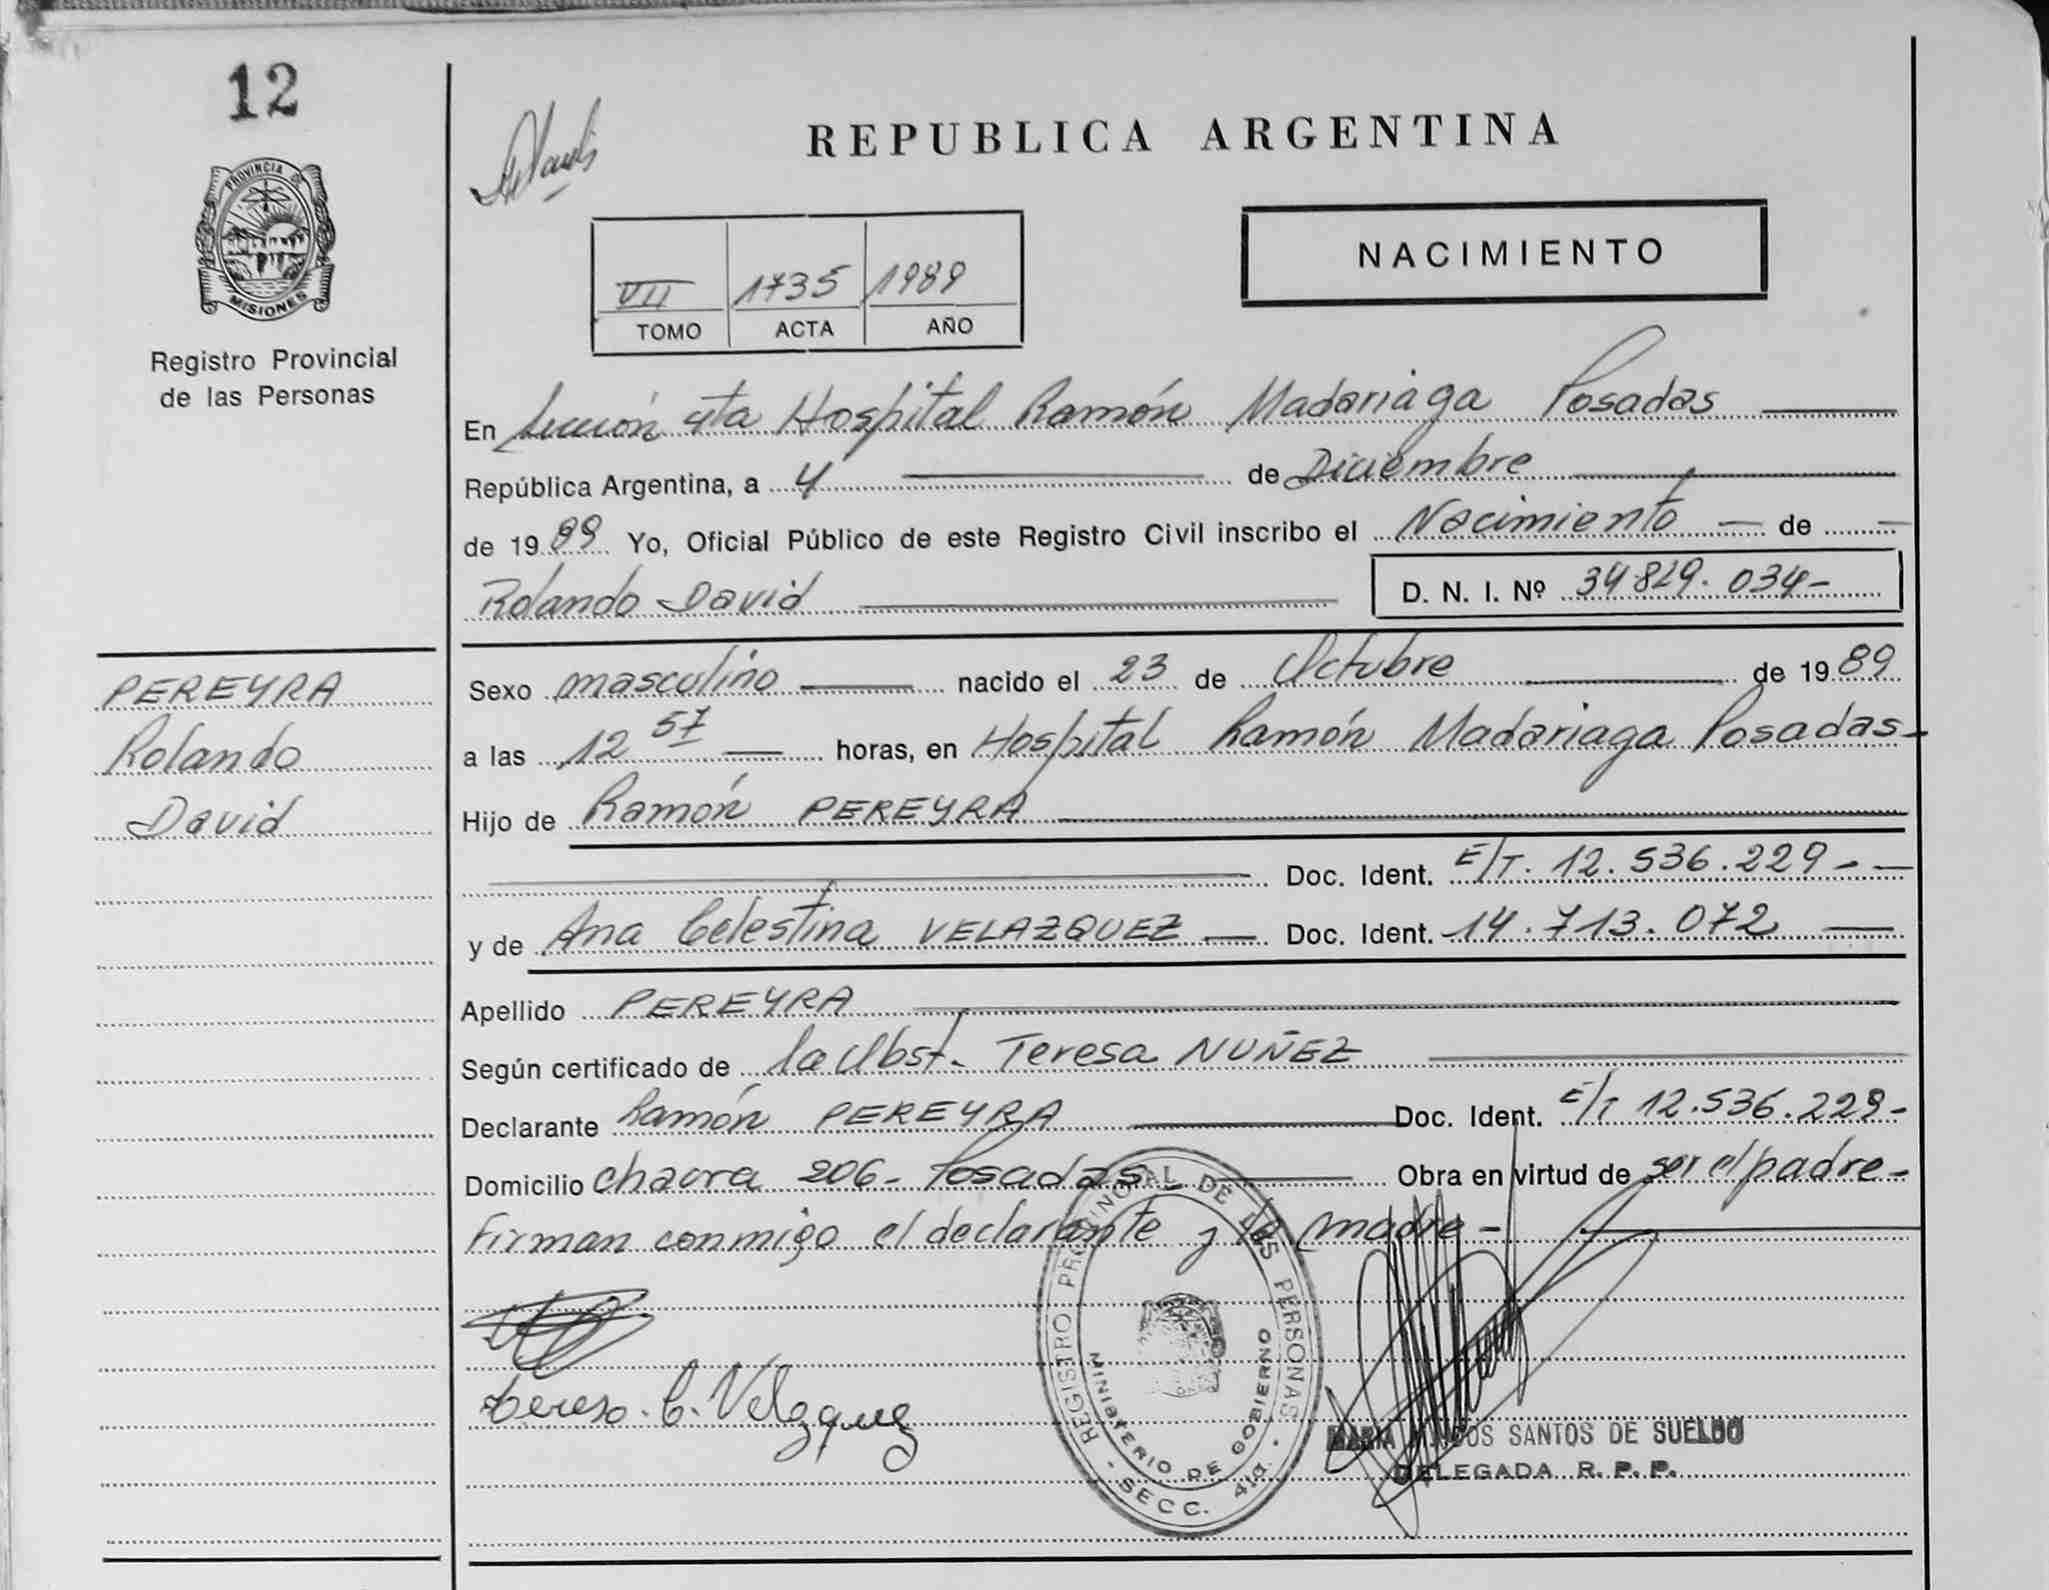 12
PROVINCIA DE
MISIONES
Registro Provincial
de las Personas
REPUBLICA ARGENTINA
VII 1735 1989
TOMO ACTA AÑO
NACIMIENTO
En Sección 4ta Hospital Ramón Madariaga Posadas
República Argentina, a 4 de Diciembre
de 1989 Yo, Oficial Público de este Registro Civil inscribo el Nacimiento de
Rolando David
D. N. I. Nº 34.829.034-
PEREYRA
Rolando
David
Sexo masculino nacido el 23 de Octubre de 1989
a las 12 57 horas, en Hospital Ramón Madariaga Posadas-
Hijo de Ramón PEREYRA
Doc. Ident. E/T. 12.536.229-
y de Ana Celestina VELAZQUEZ Doc. Ident. 14.713.072
Apellido PEREYRA
Según certificado de la Obst. Teresa NUÑEZ
Declarante Ramón PEREYRA Doc. Ident. E/T 12.536.229-
Domicilio 206- Posadas- Obra en virtud de ser el padre-
Firman conmigo el declarante y la madre-
C. Velazquez
REGISTRO PROVINCIAL DE LAS PERSONAS
MINISTERIO DE GOBIERNO
SECC. 4ta.
MARIA DOS SANTOS DE SUELDO
DELEGADA R. P. P.